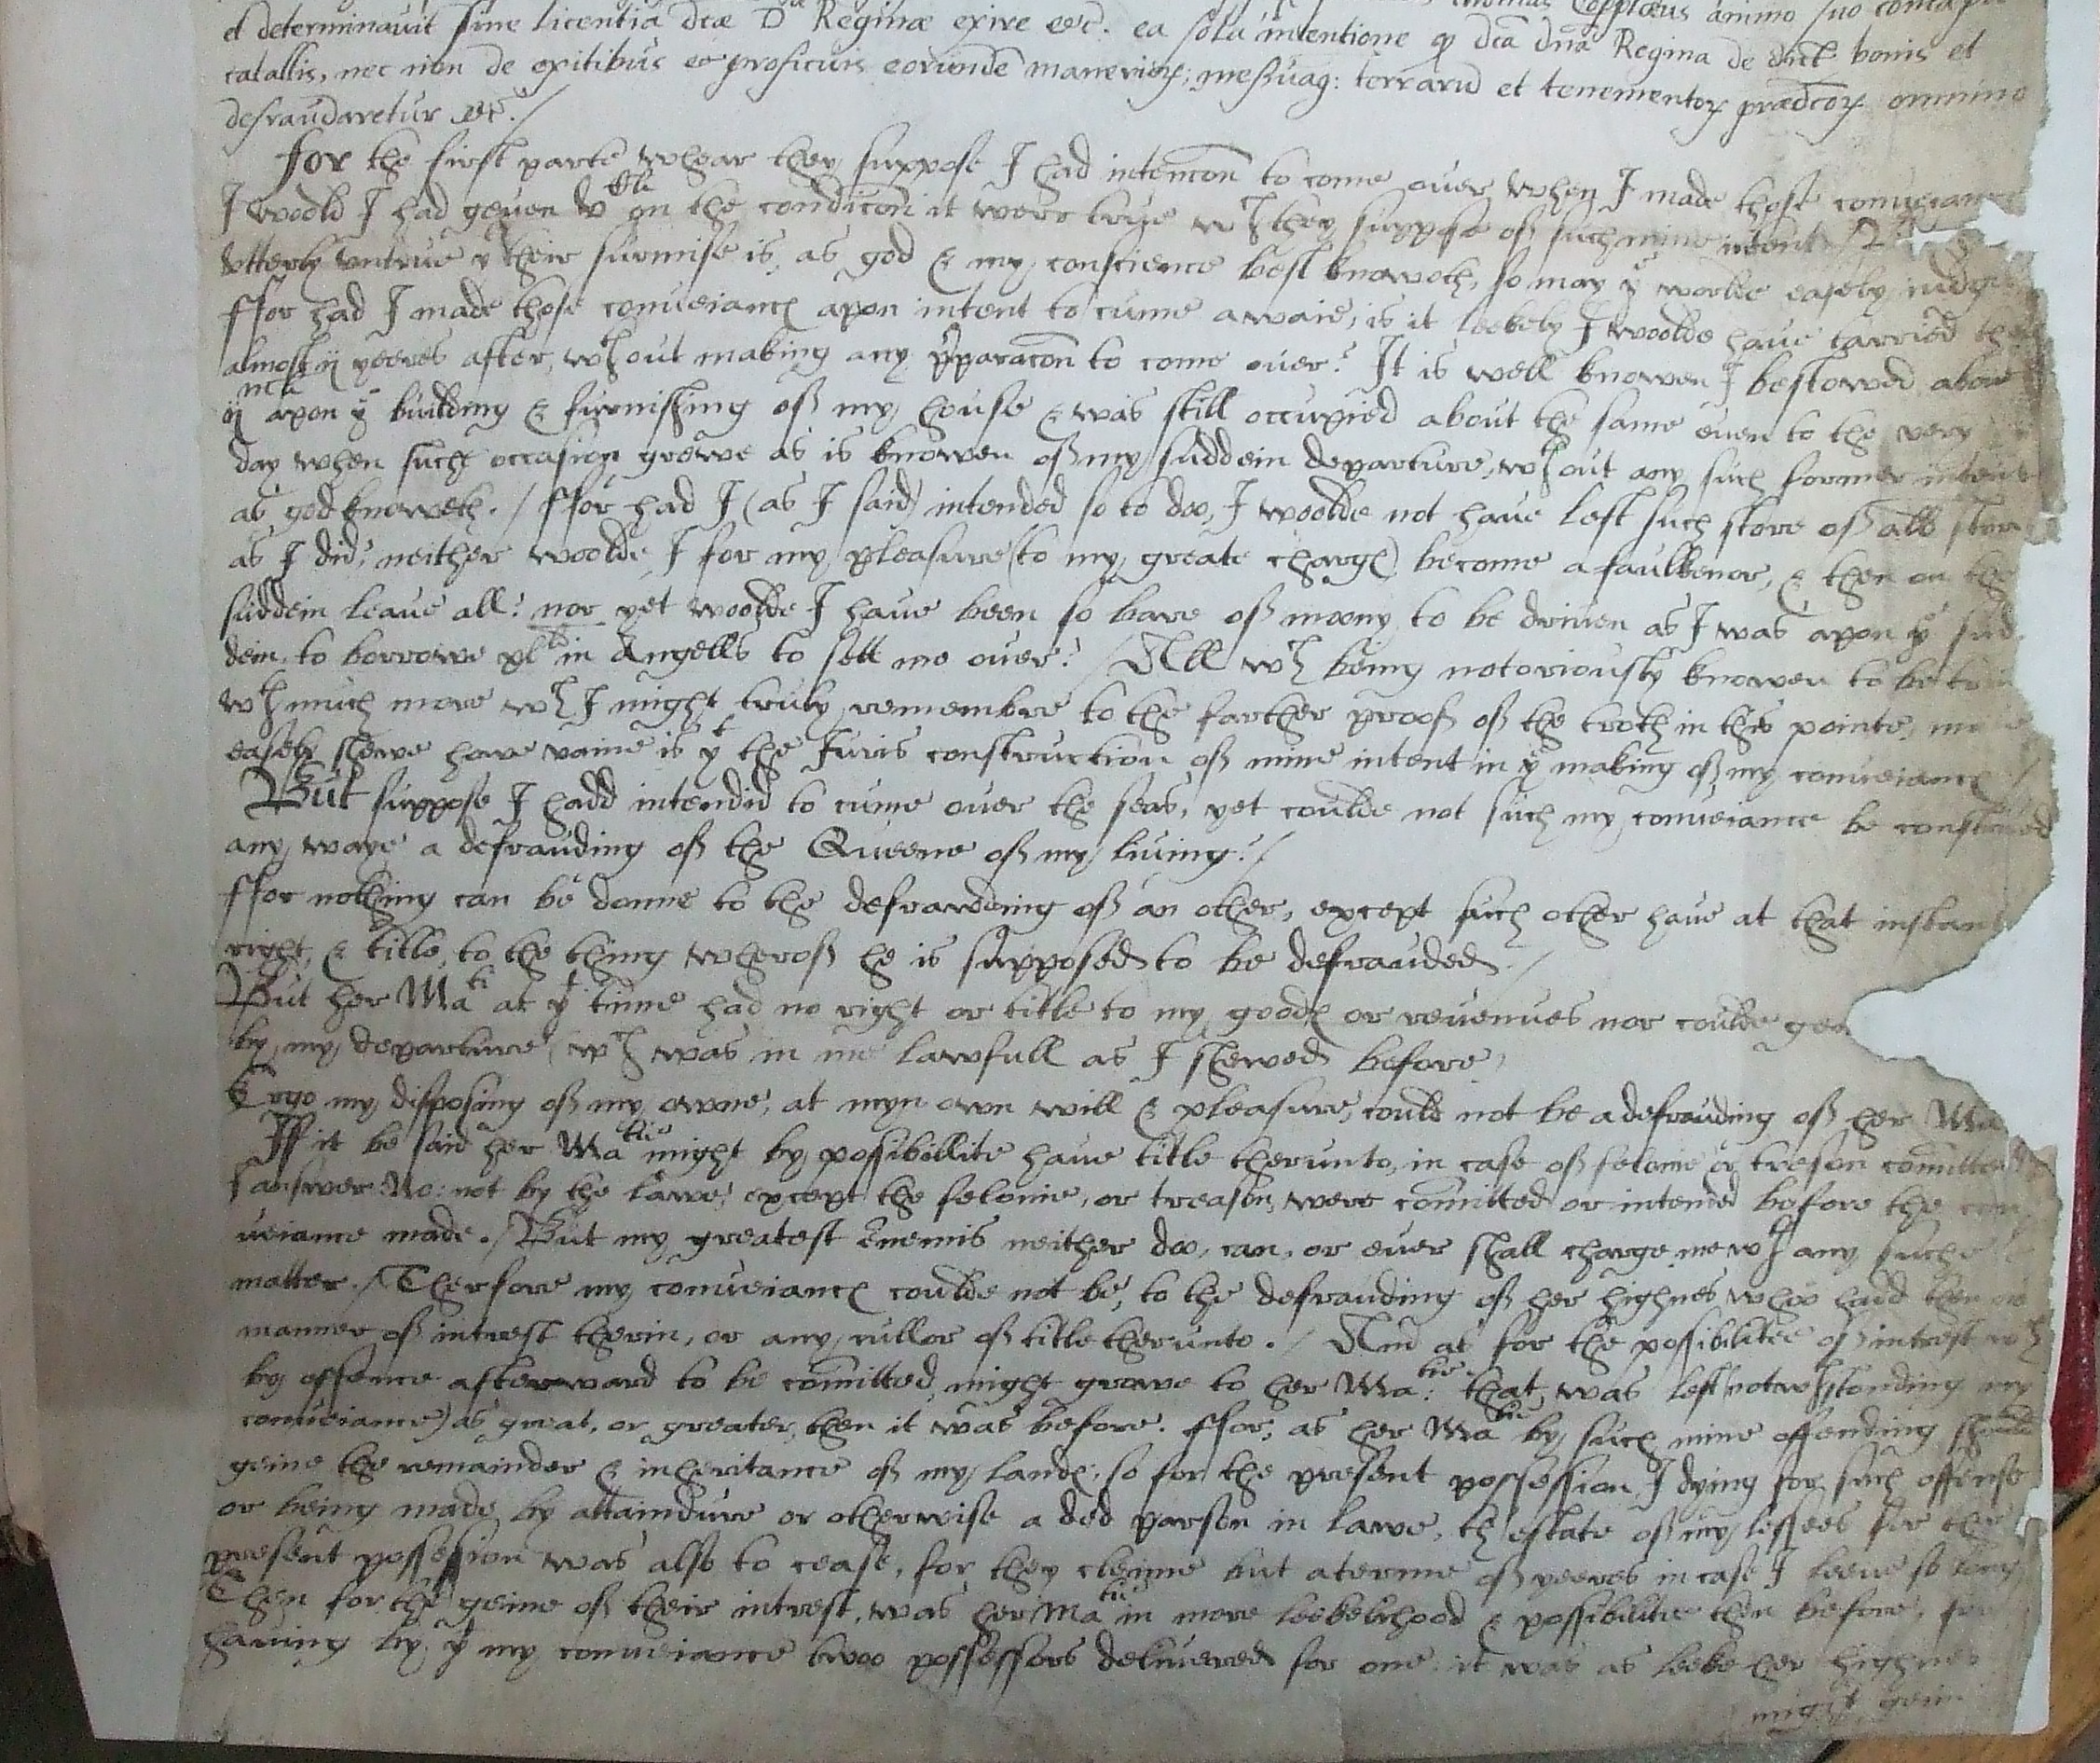 et determinavit sine licentia dcæ Dnæ Reginæ exire &c. ea sola intentione q dca dna Regina de dict bonis et
catallis, nec non de exitibus & proficuis eorundē manerioꝝ, messuag: terrarū et tenementoꝝ prædcoꝝ omnino
defraudaretur &c./
For the first parte whear they suppose I had intencōn to come ouer when I made those conveiance
I woold I had geuen vli on the condicōn it were trye wch they suppose of such mine intent
vtterly vntrue yt their surmise is, as god & my conscience best knoweth, so may ye worlde easely iudge
ffor had I made those conveiancꝭ apon intent to cume awaie, is it leekely I woolde haue tarried ther
almost ij yeeres after, wthout making any p̄paracōn to come ouer? It is well knowen I bestowed aboue
ijMli apon ye building & furnishing of my house & was still occupied about the same euen to the very
day when suche occasion growe as is knowen of my suddein departure, wthout any such former intent
as god knoweth./ ffor had I (as I said) intended so to doo, I woolde not haue left such store of all
as I did; neither woolde I for my pleasure (to my greate chargꝭ) become a faulkenor, & then on the
suddein leaue all? nor yet woolde I haue been so bare of moony to be driuen as I was apon ye sud
dein, to borrowe xlli in Angells to sett me ouer?/ All wch being notoriously knowen to be true
wth much more wch I might truly remembre to the farther proof of the troth in this pointe, may
easely shewe how vaine is yt the Juris construction of mine intent in ye making of my conveiancꝭ/
But suppose I hadd intendid to cume ouer the seas, yet coulde not such my conveiance be construed
any waye a defrauding of the Queene of my living?/
ffor nothing can be donne to the defrauding of an other, except such other haue at that instant
right, & title, to the thing wherof he is supposed to be defrauded./
But her Mati at yt time had no right or title to my goodꝭ or reuenues nor coulde
by my departure (wch was in me lawfull as I shewed before)
Ergo my disposing of my owne, at myn own will & pleasure, could not be a defrauding of her Ma
Iff it be said her Matie might by possibillite haue title therunto, in case of felonie or treson comitted
I answer No: not by the lawe; except the felonie, or treason, were comitted or intended before the con
ueiance made./ But my greatest Enemis neither doo, can, or euer shall charge me wth any suche
matter./ Therfore my conveiancꝭ coulde not be, to the defrauding of her highnes whoo hadd then no
manner of intrest therin, or any cullor of title therunto./ And as for the possibilitee of intrest wch
by offence afterward to be comitted might growe to her Matie: that was left (notwthstanding my
conveiance) as great, or greater, then it was before. ffor, as her Matie by such mine offending should
geine the remainder & inheritance of my landꝭ, so for the present possession I dying for such offense
or being made by attaindure or otherwise a ded parson in lawe, th estate of my lessees for the
present possession was also to cease, for they cleime but a terme of yeeres in case I leeue so long
Then for the geine of their intrest, was her Matie in more leekelihood & possibilitie then before, for
hauing by yt my conveiance twoo possessors deliuered for one, it was as leeke her highnes
might gein